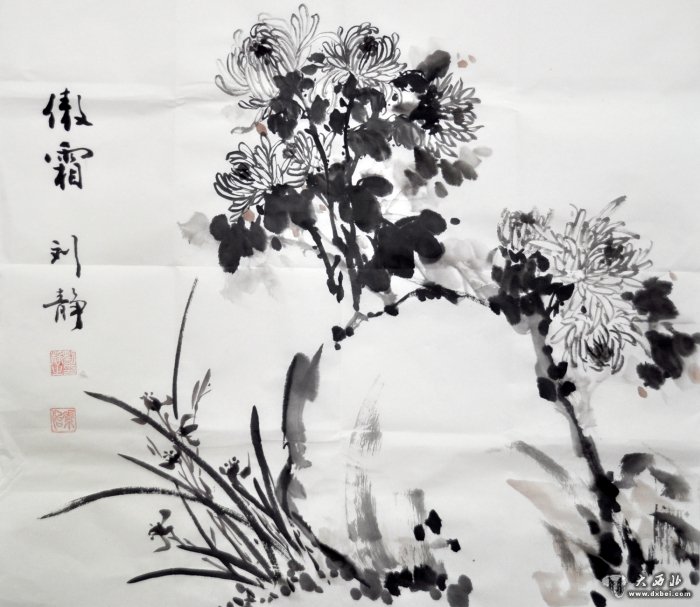 傲霜
刘静
大西北
www.dxbei.com